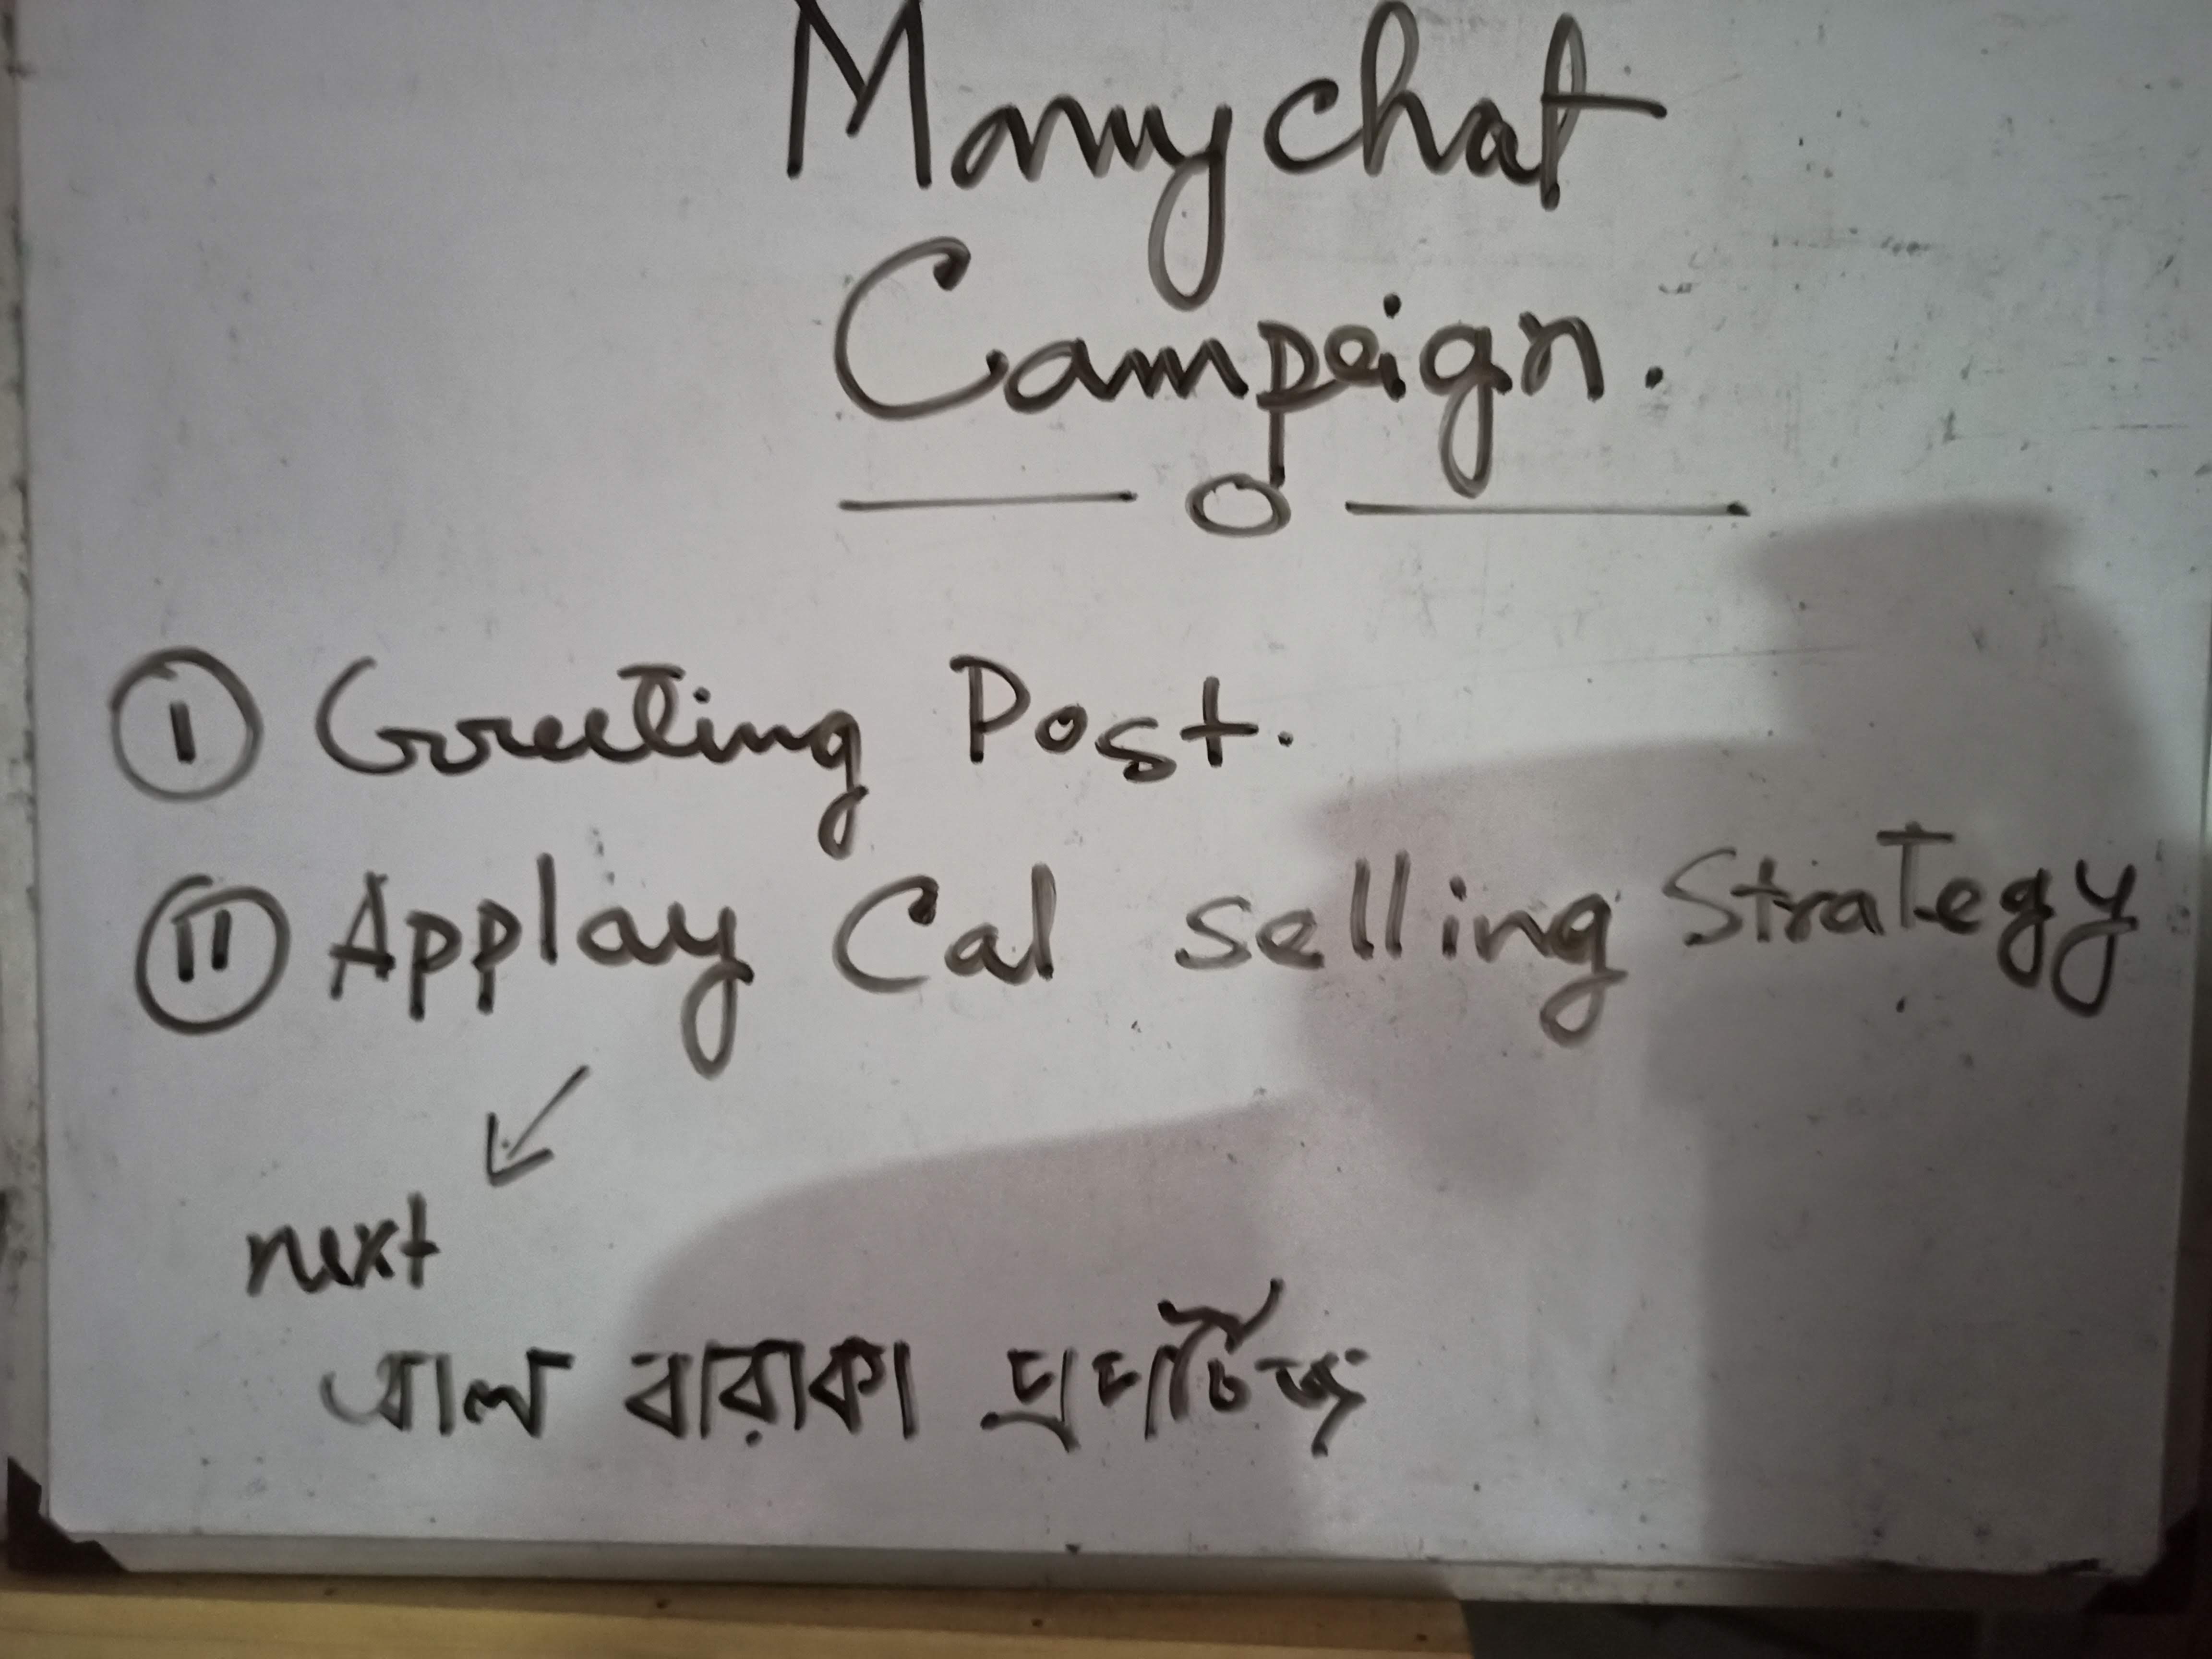 Manychat
Campeign.
① Greeting Post.
② Applay Cal selling Strategy
next
আল বারাকা প্রপার্টিজ